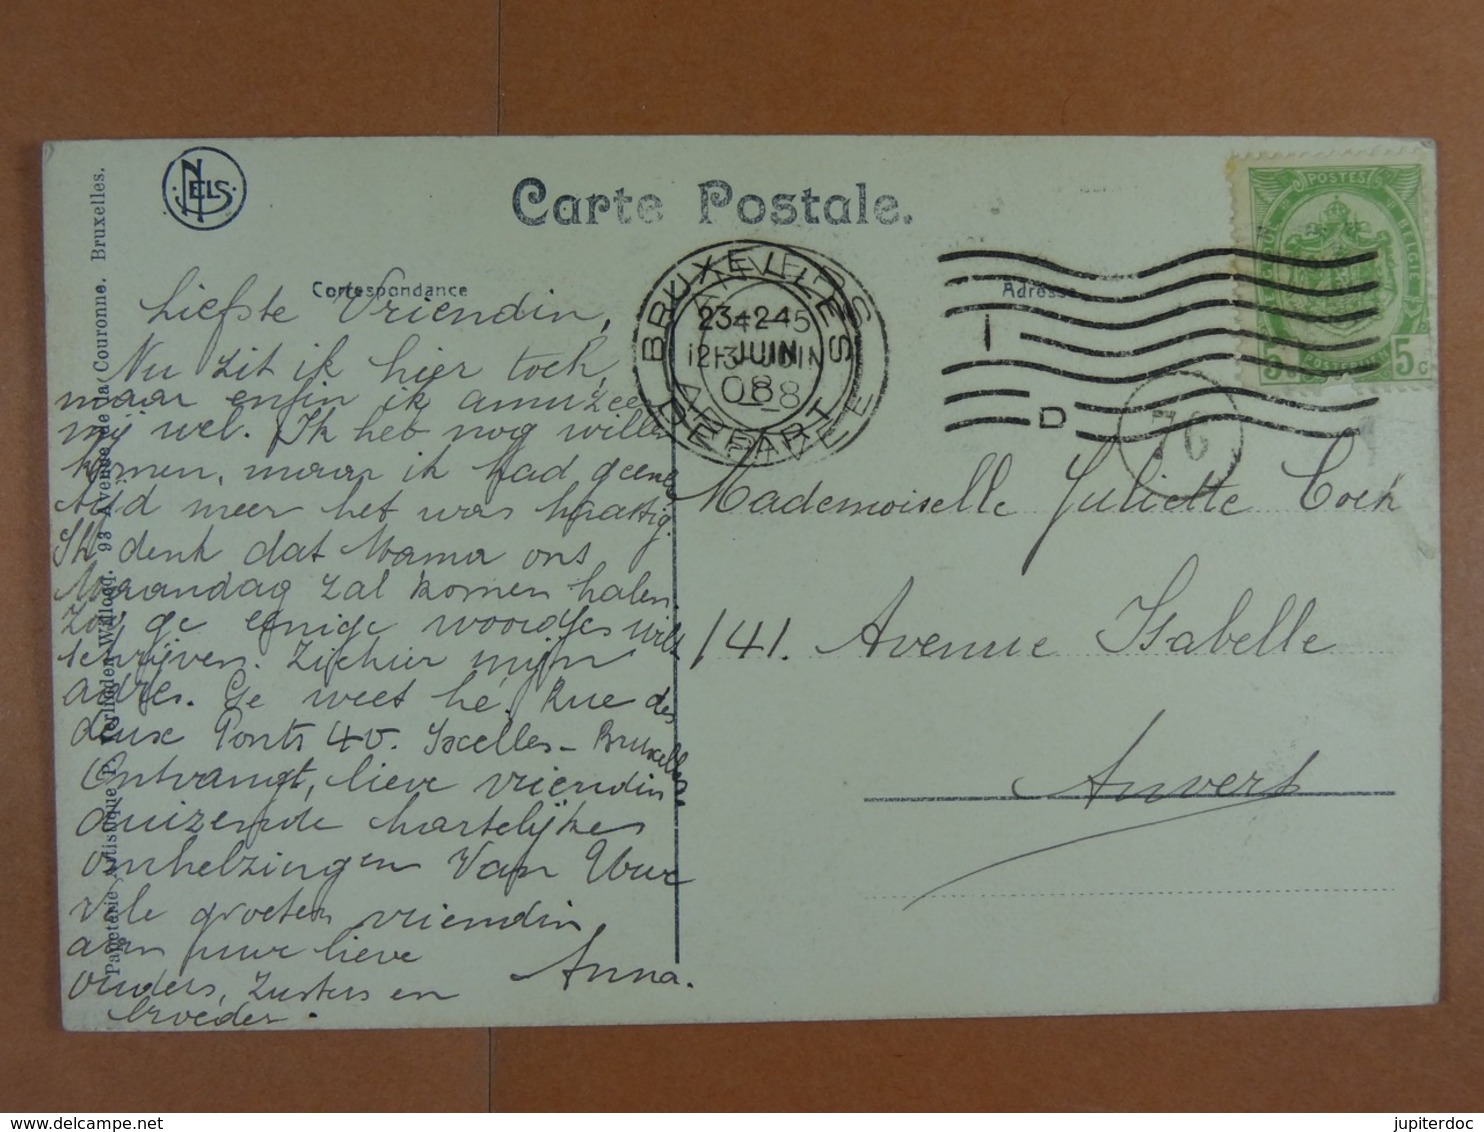 NELS
Carte Postale.
Correspondance
Adresse
POSTES
BELGIQUE BELGIE
POSTERIJEN
5 5c
BRUXELLES
23-24
JUIN
08
DEPART
1
D
7G
Liefste Vriendin,
Nu zit ik hier toch,
maar enfin ik amuzeer
mij wel. Ik heb nog willen
komen, maar ik had geene
tijd meer het was haastig.
Ik denk dat Mama ons
Maandag zal komen halen.
Zoo ge eenige woordjes wilt
schrijven. Ziehier mijn
adres. Ge weet hé. Rue des
deux Ponts 40. Ixelles - Bruxelles.
Ontvangt, lieve vriendin
duizende hartelijkes
omhelzingen van Uwe
vele groeten vriendin
aan uwe lieve
ouders, zusters en
broeder.
Anna.
Mademoiselle Juliette Coch
141. Avenue Isabelle
Anvers
Papeterie Artistique P. Verlinden-Willocq. 93 Avenue de la Couronne. Bruxelles.
delcampe.net
jupiterdoc